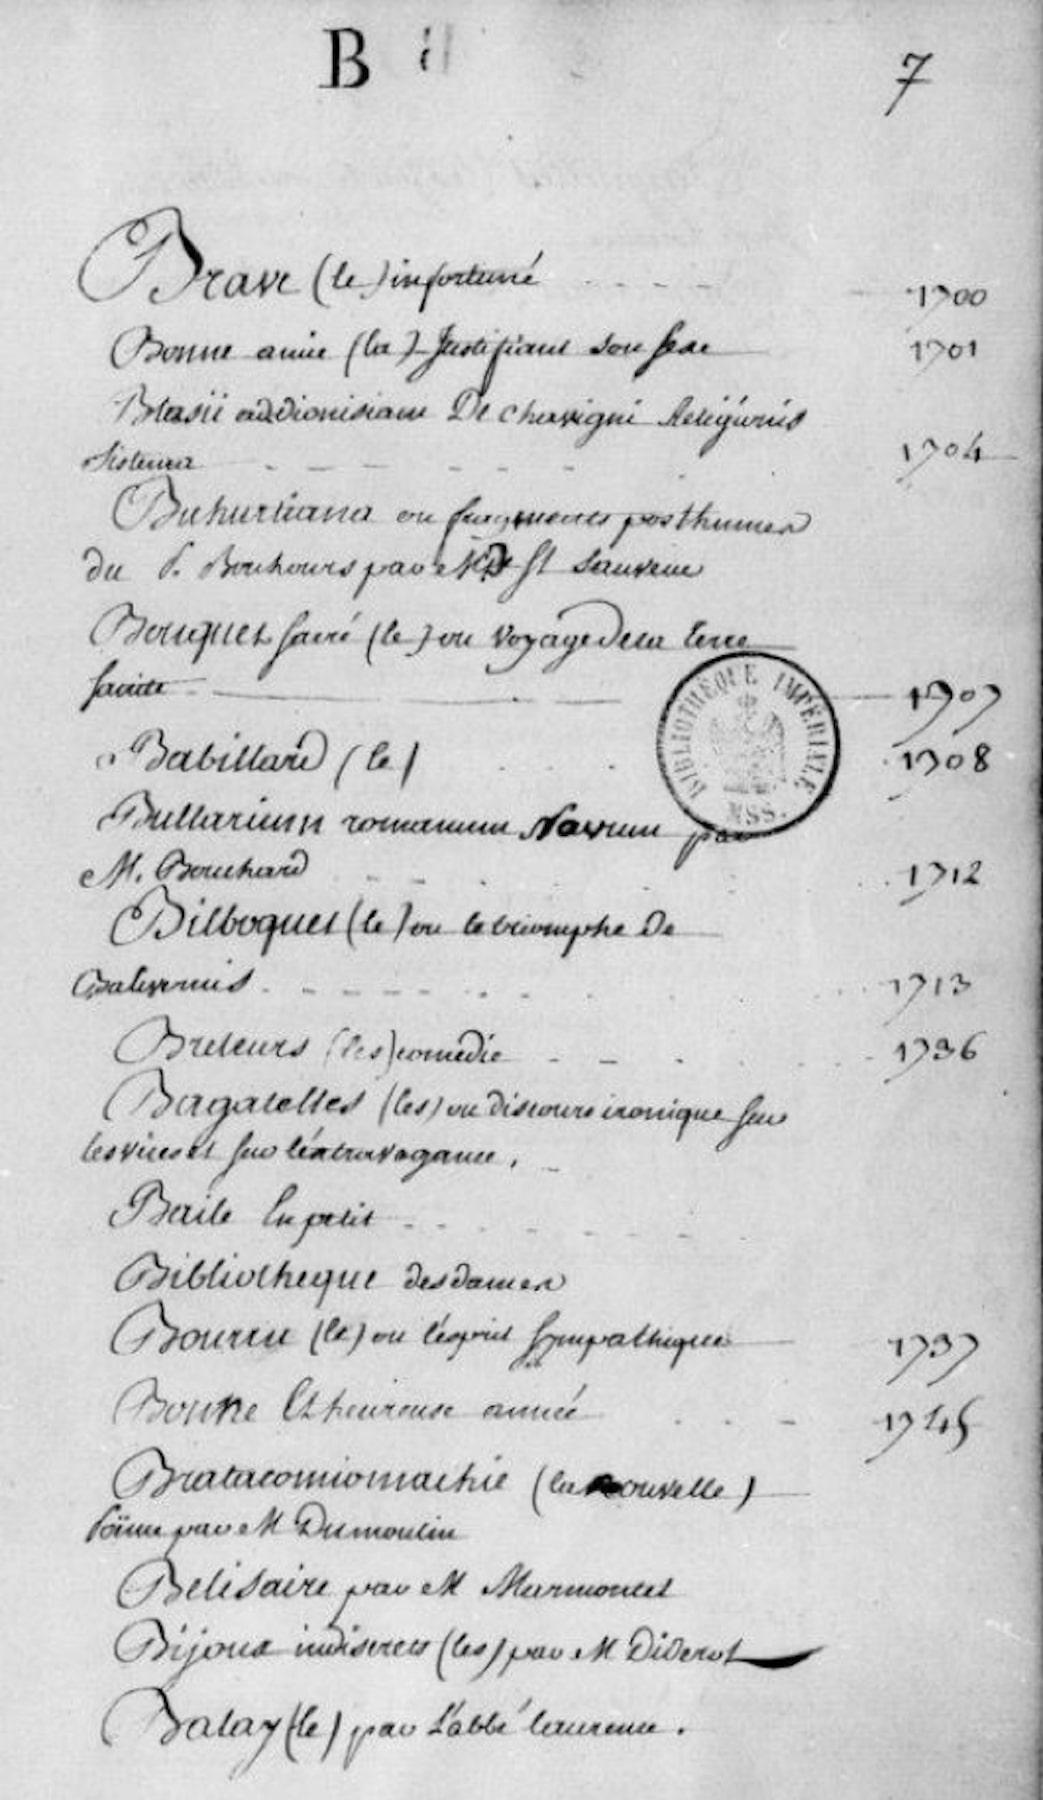 B il
7
Brave (le) infortuné 1700
Bonne amie (la) Justifiant son sexe 1701
Blasii ad dionisiam De chavigni Religiosis
sistema 1704
Buhursiana ou fragments posthumes
du P. Bouhours par M St Sauveur
Bouquet sacré (le) ou Voyage de la terre
sainte 1707
BIBLIOTHÈQUE IMPÉRIALE MSS.
Babillard (le) 1708
Bullarium romanum Novum par
M. Bouchard 1712
Bilboquet (le) ou le triomphe De
1713
Breteurs (les) comedie 1736
Bagatelles (les) ou discours ironique sur
les vices et sur l'extravagance.
Baile En petit
Bibliotheque des dames
Bourru (le) ou l'esprit sympathique 1737
Bonne Et heureuse année 1745
Bratacomiomachie (la nouvelle)
Poëme par M Dumoulin
Belisaire par M Marmontel
Bijoux indiscrets (les) par M Diderot
Balay (le) par L'abbé laurence.